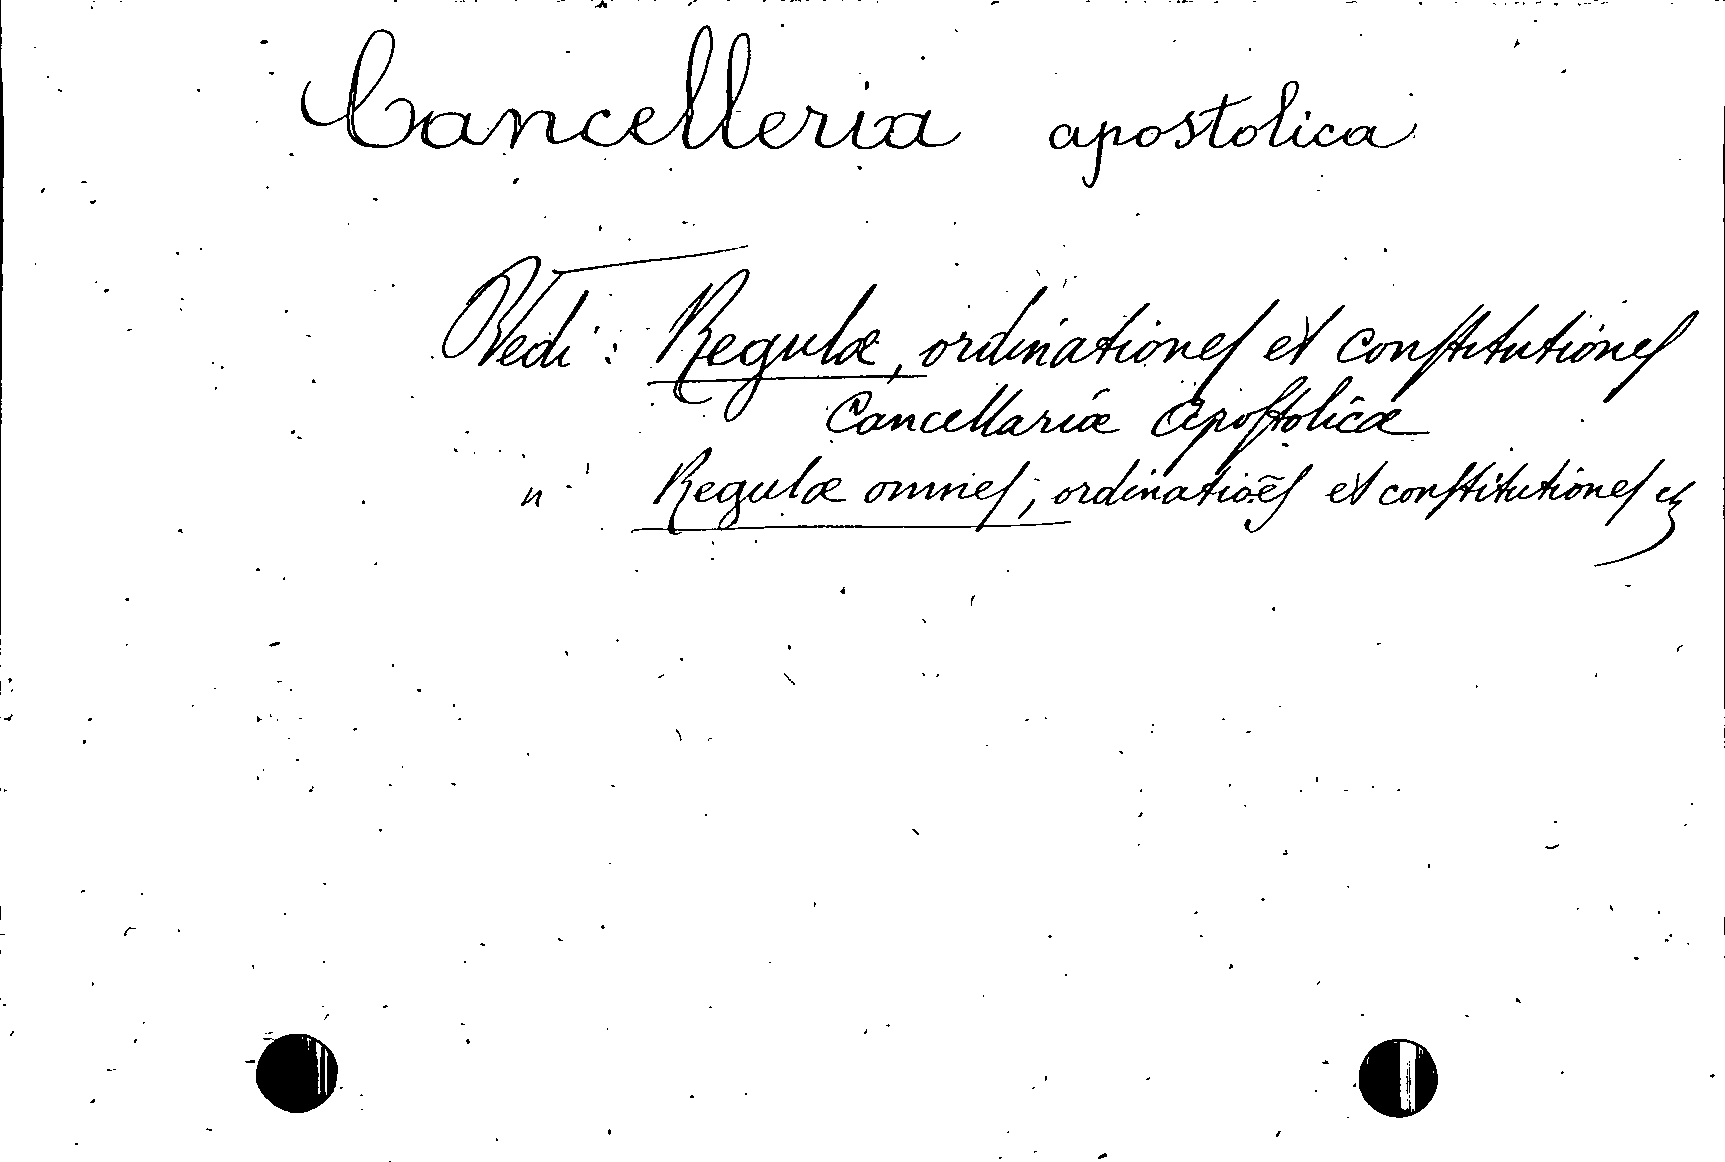 Cancelleria apostolica
Vedi: Regulæ, ordinationeſ et conſtitutioneſ
Cancellariæ Apoſtolicæ
" Regulæ omneſ, ordinatiōeſ et conſtitutioneſ